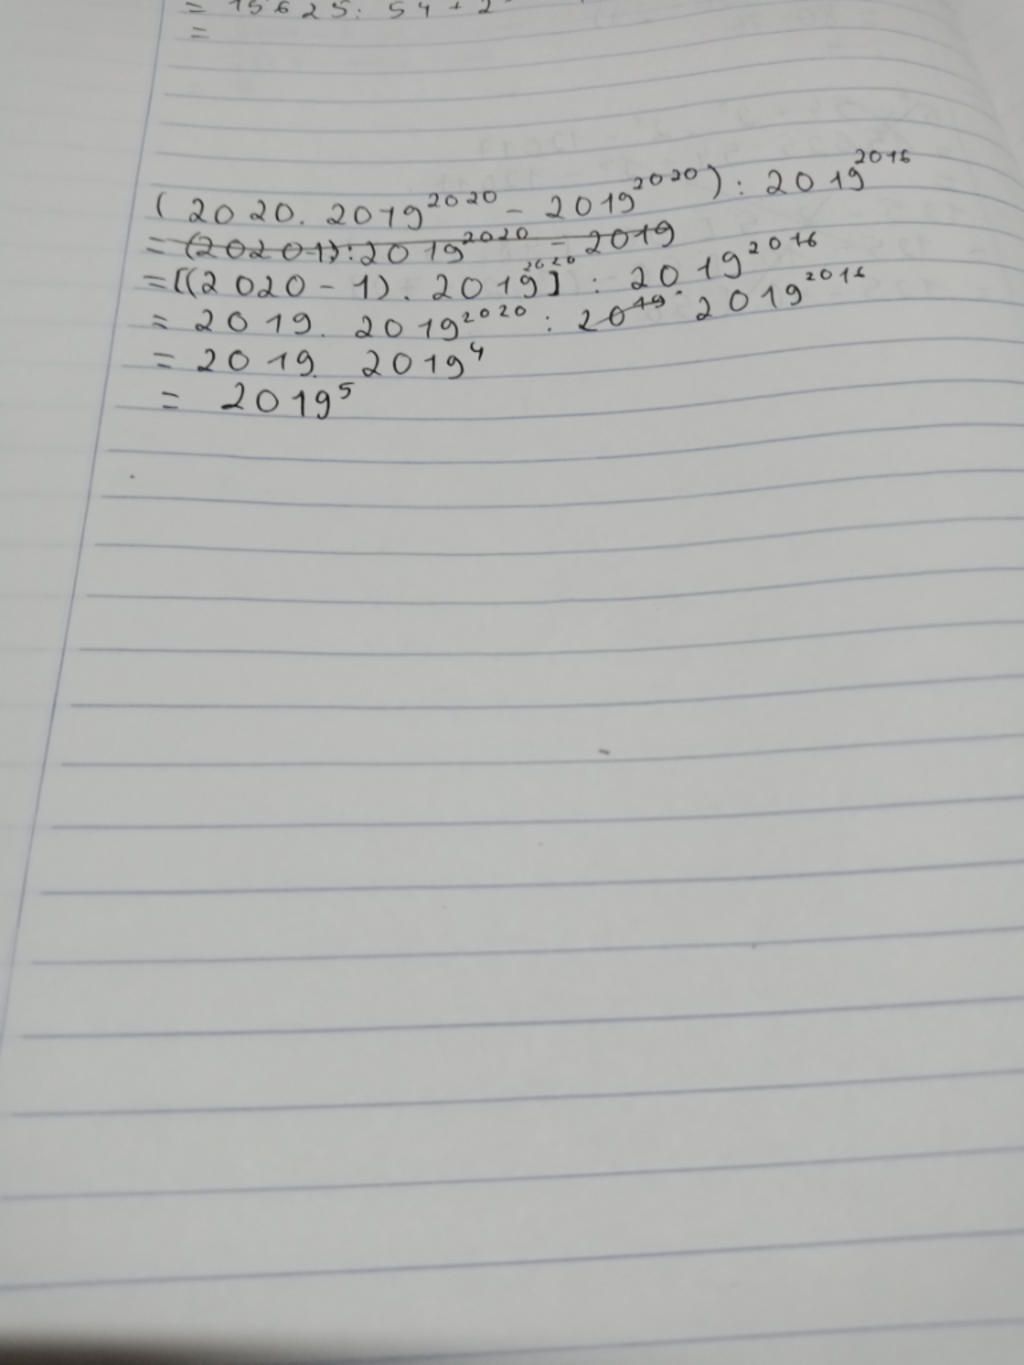 = 15625: 54 + 2
=
(2020. 2019²⁰²⁰ - 2019²⁰²⁰): 2019²⁰¹⁶
= (20201):2019²⁰²⁰ - 2019
= [(2020 - 1). 2019²⁰²⁰] : 2019²⁰¹⁶
= 2019. 2019²⁰²⁰ : 20¹⁹. 2019²⁰¹⁶
= 2019. 2019⁴
= 2019⁵